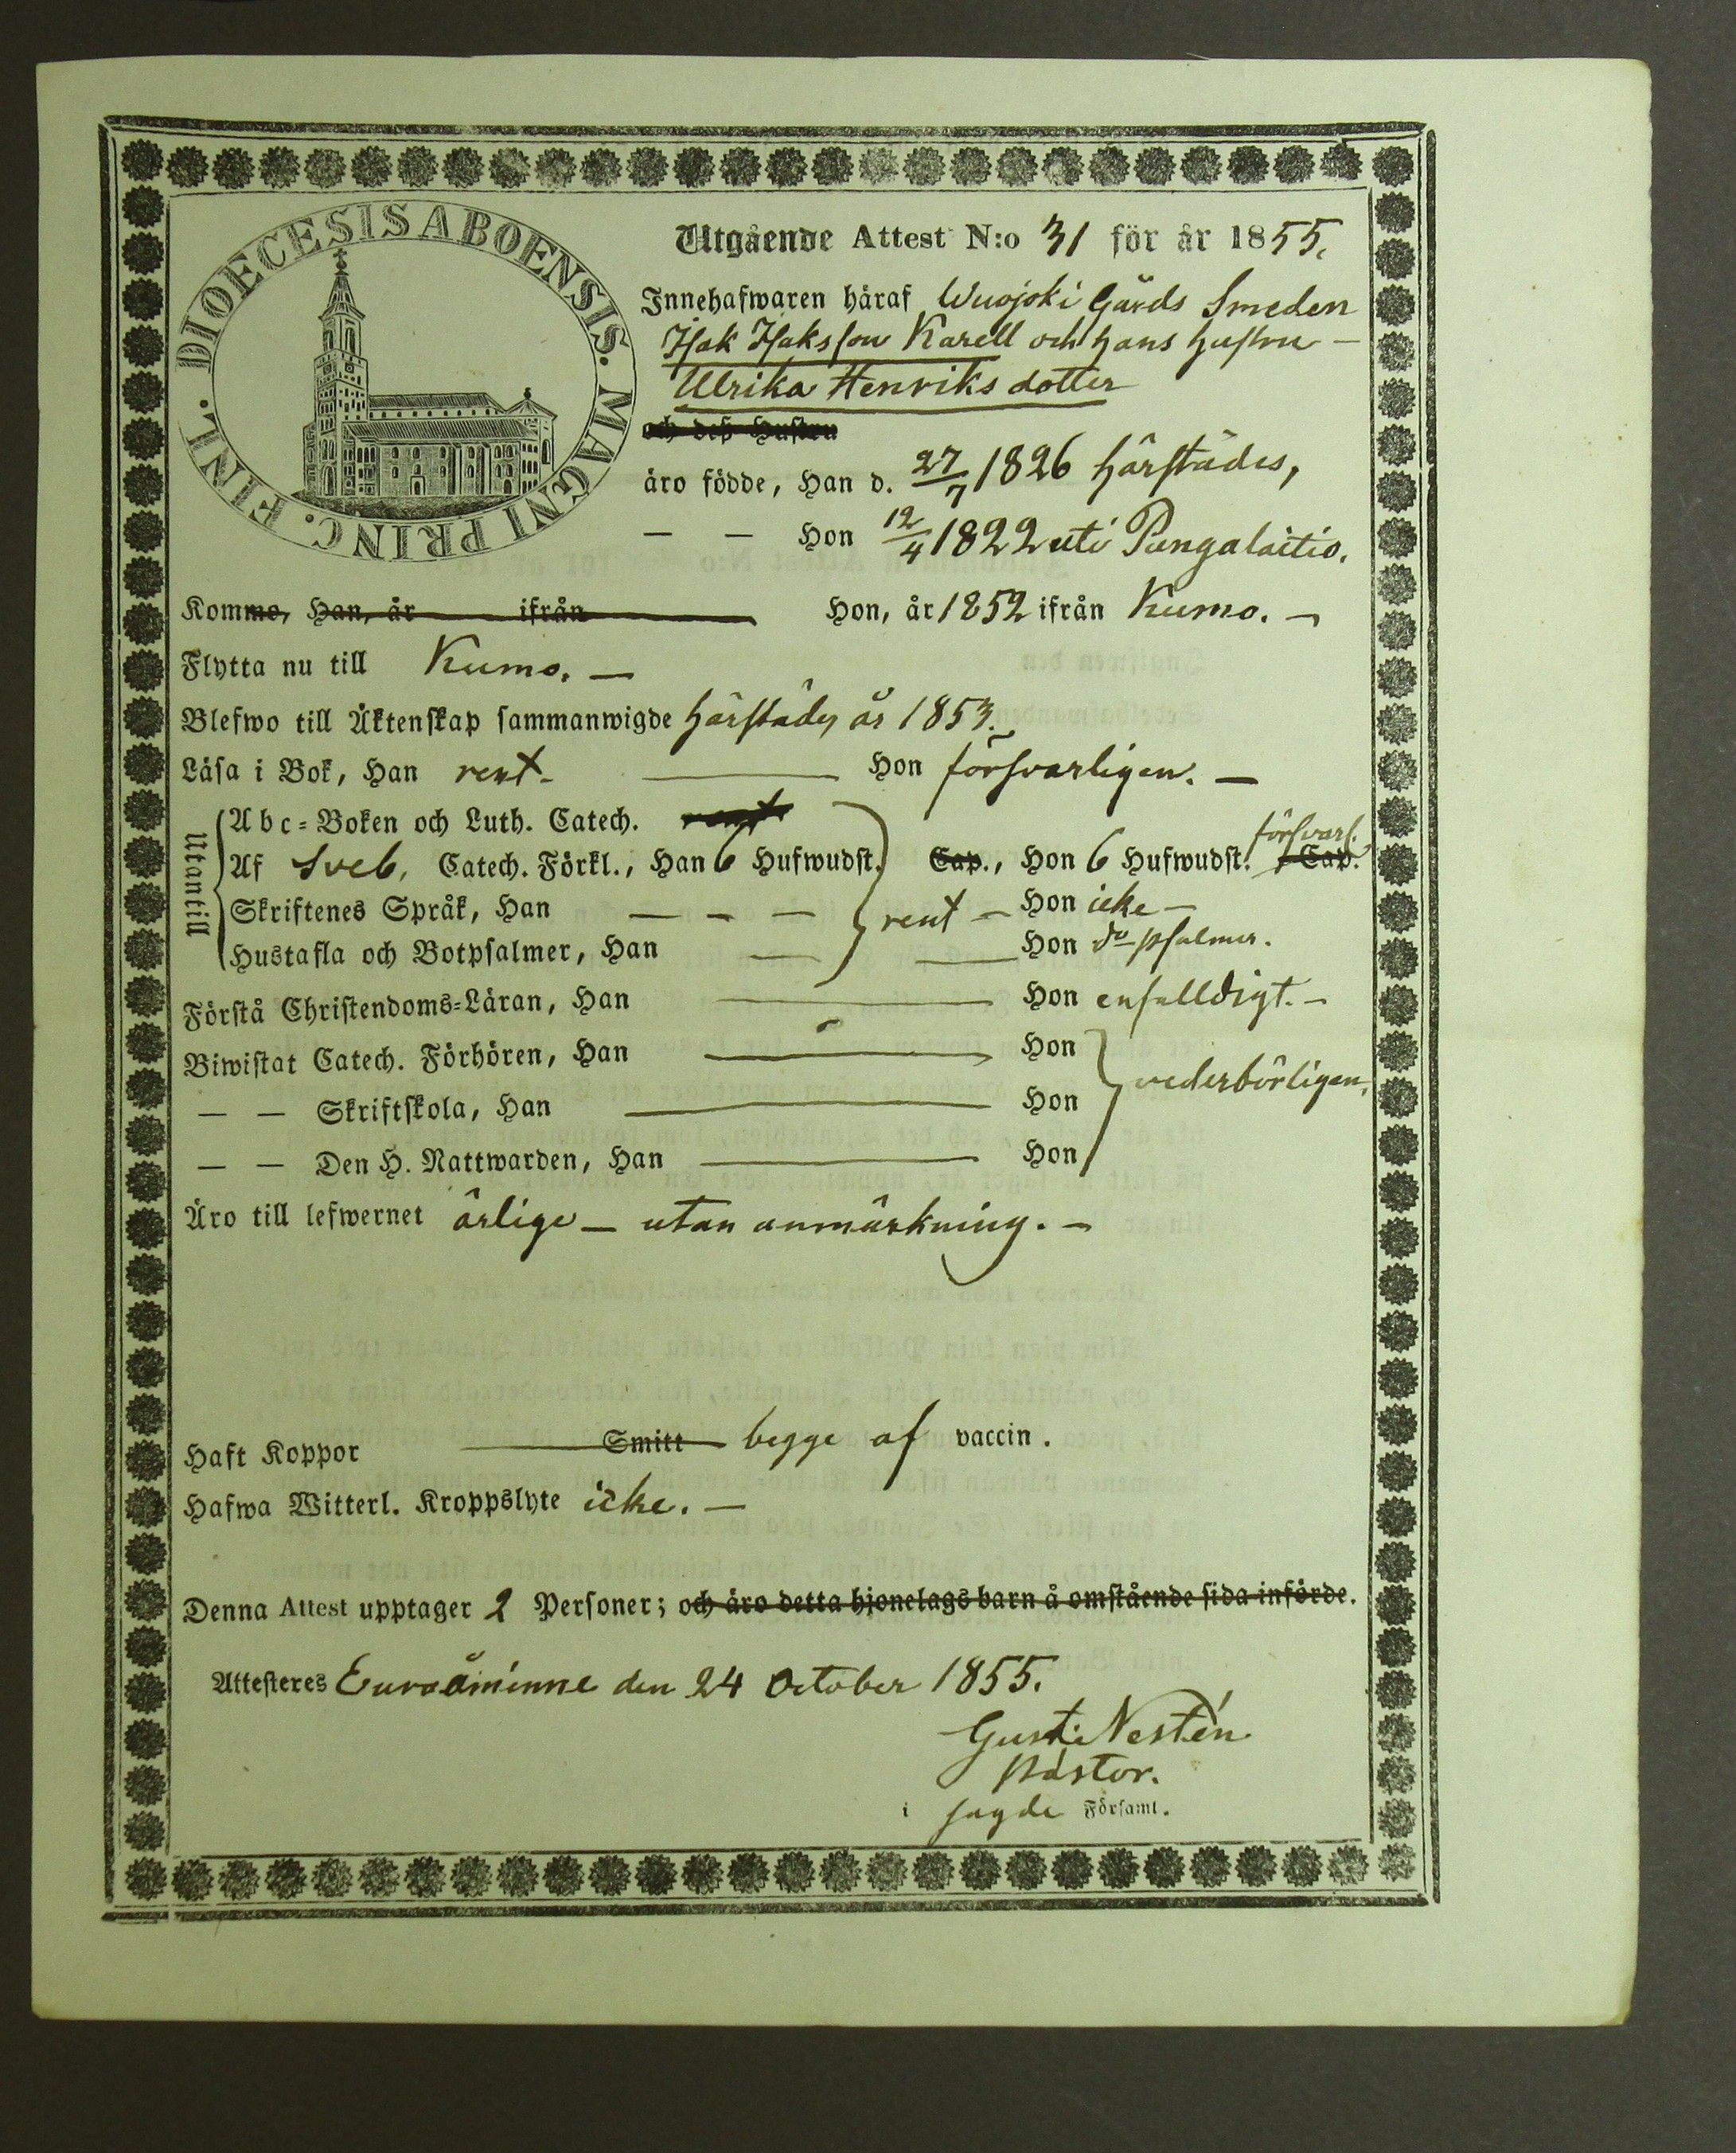 DIOECESIS ABOENSIS. MAGNI PRINC. FINL.
Utgående Attest N:o 31 för år 1855.
Innehafwaren häraf Wuojoki Gårds Smeden
Isak Isaksson Karell och hans hustru —
Ulrika Henriks dotter
och deß Hustru
äro födde, Han d. 27/7 1826 härstädes,
— — Hon 12/4 1822 uti Pungalaitio.
Komne, Han, år ifrån Hon, år 1852 ifrån Kumo. —
Flytta nu till Kumo. —
Blefwo till Äktenskap sammanwigde härstädes år 1853.
Läsa i Bok, Han rent — Hon försvarligen. —
Utantill
Abc-Boken och Luth. Catech. rent
försvarl.
Af Sveb. Catech. Förkl., Han 6 Hufwudst. Cap., Hon 6 Hufwudst. Cap.
Skriftenes Språk, Han — — — rent — Hon icke —
Hustafla och Botpsalmer, Han — — Hon do psalmer.
Förstå Christendoms-Läran, Han — Hon enfalldigt. —
Biwistat Catech. Förhören, Han — Hon
vederbörligen.
— — Skriftskola, Han — Hon
— — Den H. Nattwarden, Han — Hon
Äro till lefwernet ärlige — utan anmärkning. —
Haft Koppor Smitt begge af vaccin.
Hafwa Witterl. Kroppslyte icke. —
Denna Attest upptager 2 Personer; och äro detta hjonelags barn å omstående sida införde.
Attesteres Euraåminne den 24 October 1855.
Gust: Nestén
Pastor.
i sagde Församl.